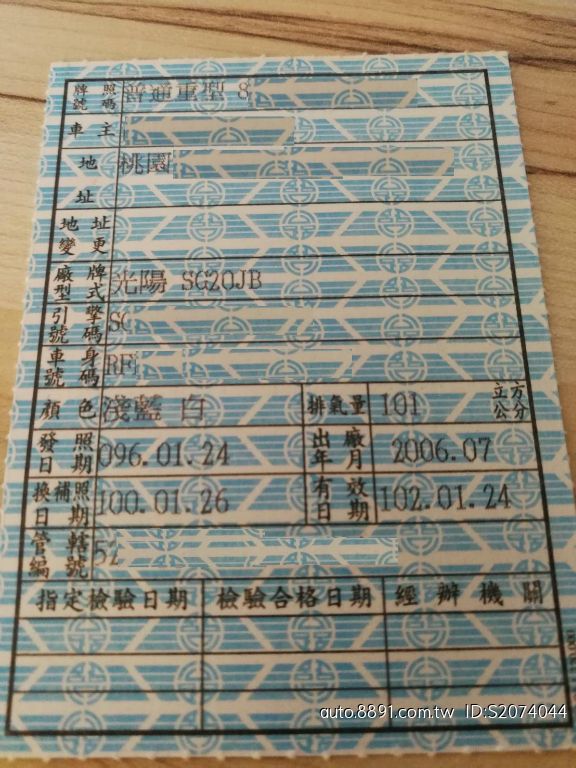 牌照號碼 普通重型 8
車主
地址 桃園
地址變更
廠牌型式 光陽 SG20JB
引擎號碼 SG
車身號碼 RF
顏色 淺藍 白 排氣量 101 立方公分
發照日期 096.01.24 出廠年月 2006.07
換補照日期 100.01.26 有效日期 102.01.24
管轄編號 52
指定檢驗日期 檢驗合格日期 經辦機關
auto.8891.com.tw ID:S2074044